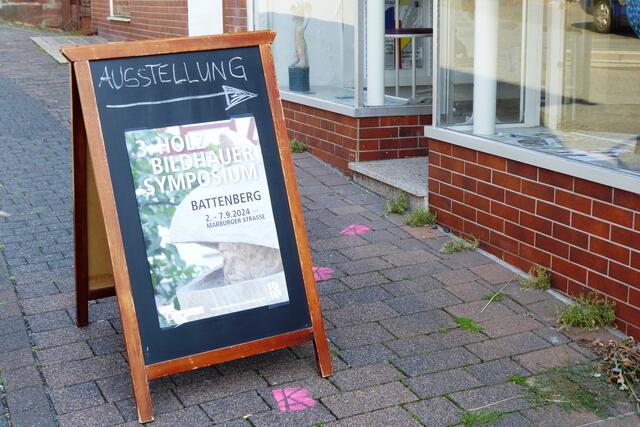 AUSSTELLUNG
3. HOLZ
BILDHAUER
SYMPOSIUM
BATTENBERG
2. - 7.9.2024
MARBURGER STRASSE